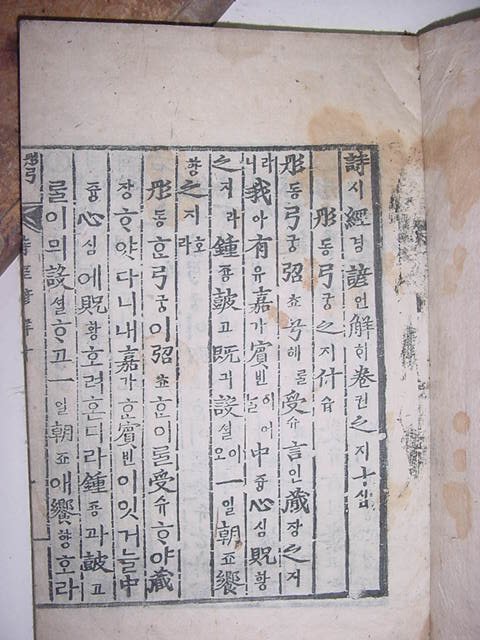 詩시經경諺언解ᄒᆡ卷권之지十십
彤동弓궁之지什습
彤동弓궁弨쵸兮혜를受슈言언藏장之지
라니我아有유嘉가賓빈이어늘中듕心심貺황
之지라鍾죵鼓고旣긔設셜이오一일朝죠饗
향之지호라
彤동ᄒᆞᆫ弓궁이弨쵸ᄒᆞᆫ이ᄅᆞᆯ受슈ᄒᆞ야藏
장ᄒᆞ얏다니내嘉가ᄒᆞᆫ賓빈이잇거늘中
듕心심에貺황호려ᄒᆞᆫ디라鍾죵과鼓고
ᄅᆞᆯ이믜設셜ᄒᆞ고一일朝죠애饗향호라
彤弓